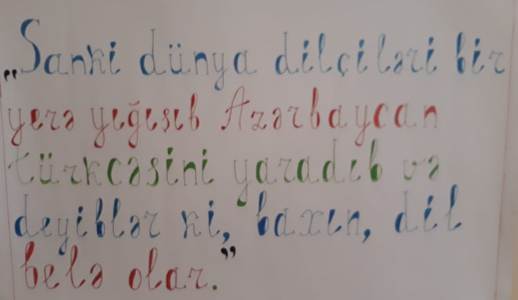 „Sanki dünya dilçiləri bir
yerə yığışıb Azərbaycan
türkcəsini yaradıb və
deyiblər ki, baxın, dil
belə olar.”